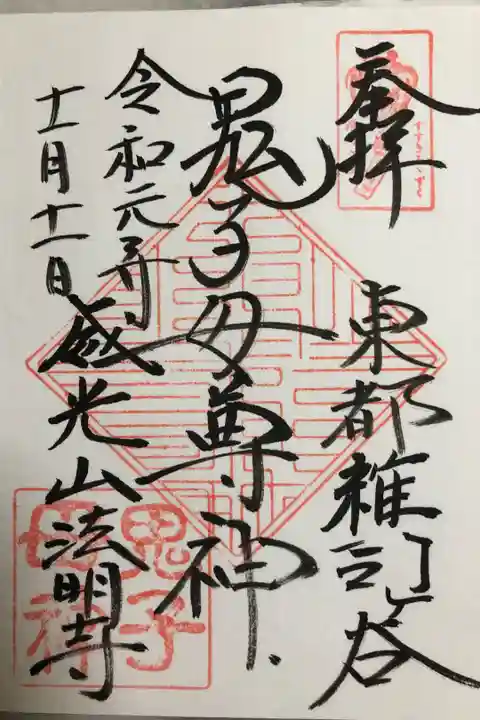 奉拝
東都雑司ヶ谷
鬼子母尊神
令和元年
十一月十一日
威光山法明寺
鬼子
母神